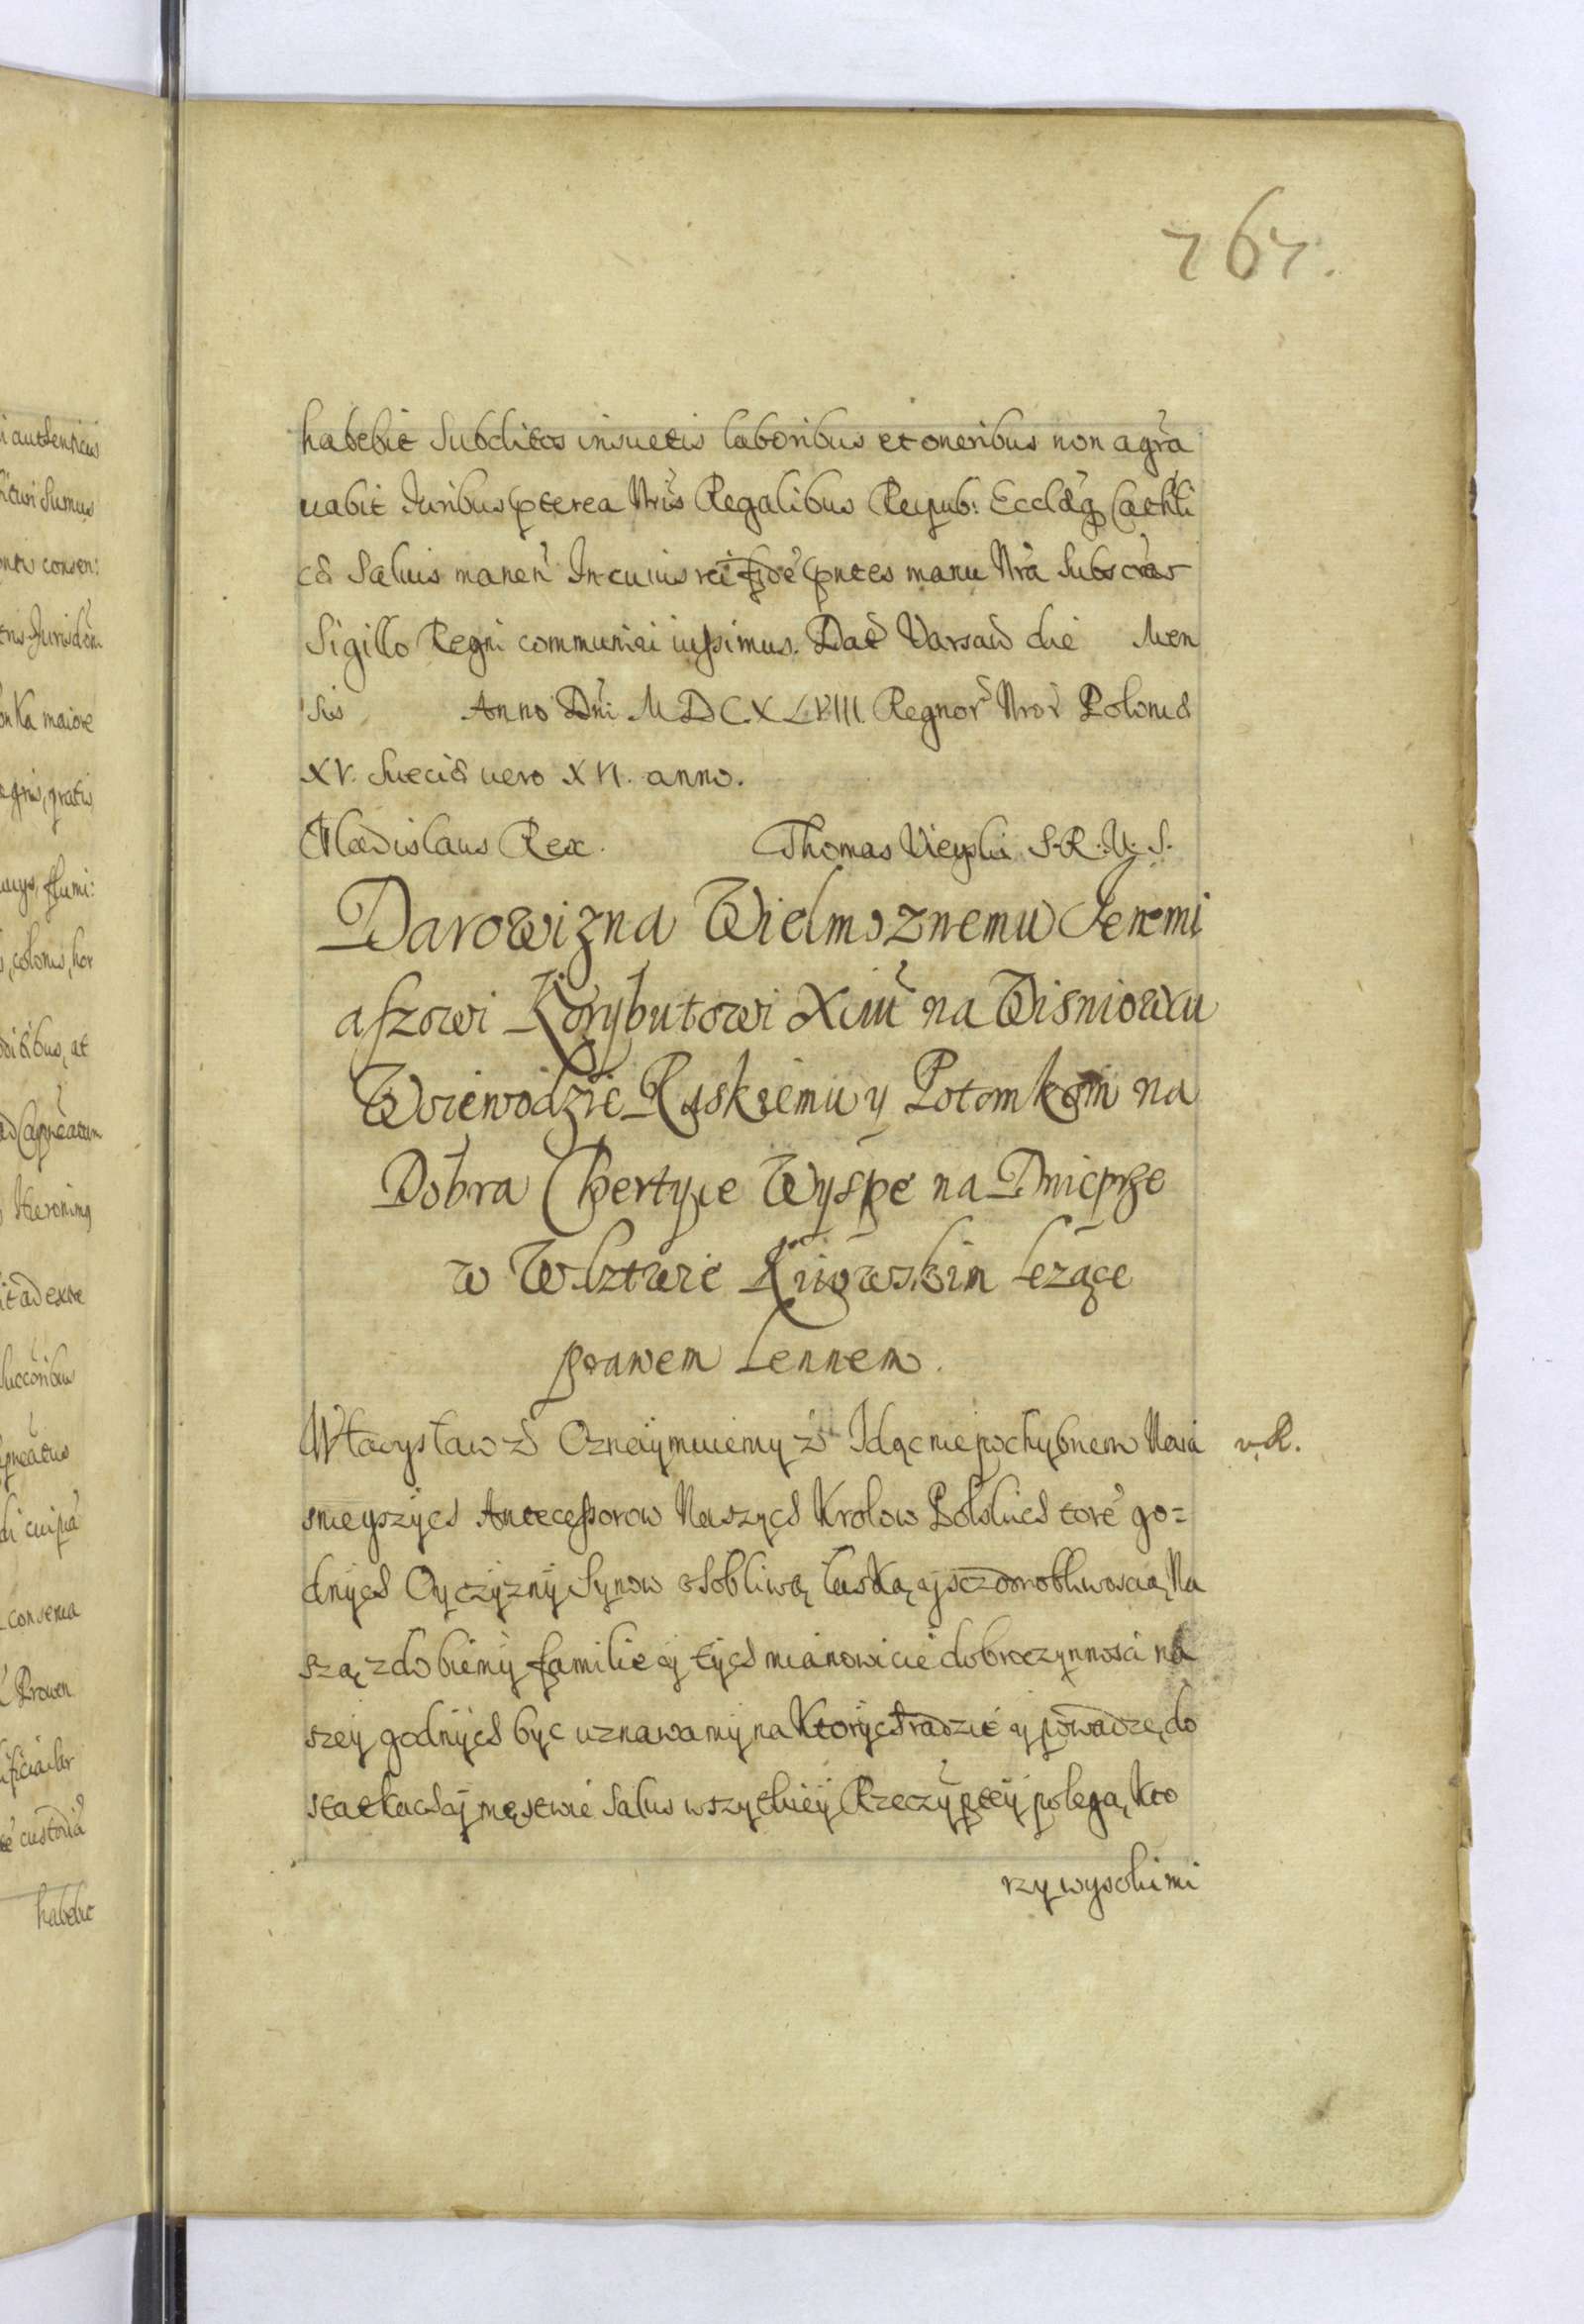 767.
habebit Subditos insuetis laboribus et oneribus non agra
uabit Iuribus pterea Nris Regalibus Reipub: Ecclaeq Cathli
cae Saluis manen In cuius rei fide pntes manu Nra Subscras
Sigillo Regni communiri iussimus. Dat Varsav die Men
sis Anno Dni MDCXLVIII Regnor Nror Poloniae
XV. Sueciae uero XVI. anno.
Vladislaus Rex. Thomas Uieyski S.R.M.S.
Darowizna Wielmoznemu Jeremi
aszowi Korybutowi Xciu na Wisniowcu
Woiewodzie Ruskiemu y Potomkom na
Dobra Chertyce Wyspe na Dnieprze
w Wdztwie Kiiowskim Lezące
prawem Lennem.
Władysław z Oznaymuiemy z Idąc niepochybnem Naia
v. R.
snieyszych Antecessorow Naszych Krolow Polskich tore go=
dnych Oyczyzny Synow osobliwą łaską y sczodrobliwoscią Na
szą zdobiemy familie y tych mianowicie dobroczynnosci na
szey godnych byc uznawamy na Ktorych radzie y powadze, do
statkach y męstwie Salus wszytkiey Rzeczyptey polega, Kto
rzy wysokimi
i authenticis
Sumus
consen:
Jurisdon
maiore
pratis
flumi:
colonis, hor
at
Hieronimq
it ad extre
succoribus
consensu
habebit